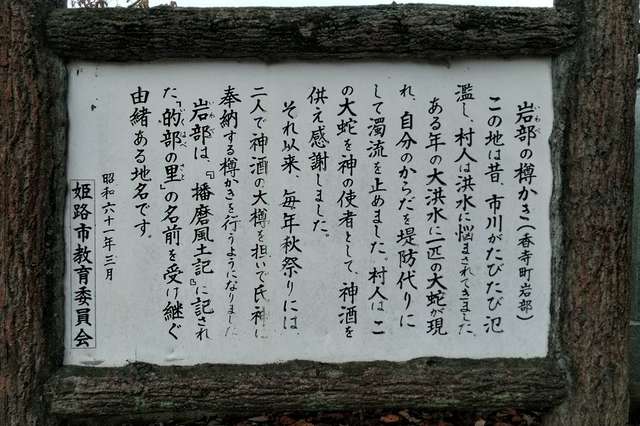 岩部の樽かき(香寺町岩部)
いわべ
この地は昔、市川がたびたび氾
濫し、村人は洪水に悩まされてきました。
ある年の大洪水に一匹の大蛇が現
れ、自分のからだを堤防代りに
して濁流を止めました。村人はこ
の大蛇を神の使者として、神酒を
供え感謝しました。
それ以来、毎年秋祭りには、
二人で神酒の大樽を担いで氏神に
奉納する樽かきを行うようになりました
岩部は、『播磨風土記』に記され
いわべ
た『的部の里』の名前を受け継ぐ
いくはべ
由緒ある地名です。
昭和六十一年三月
姫路市教育委員会